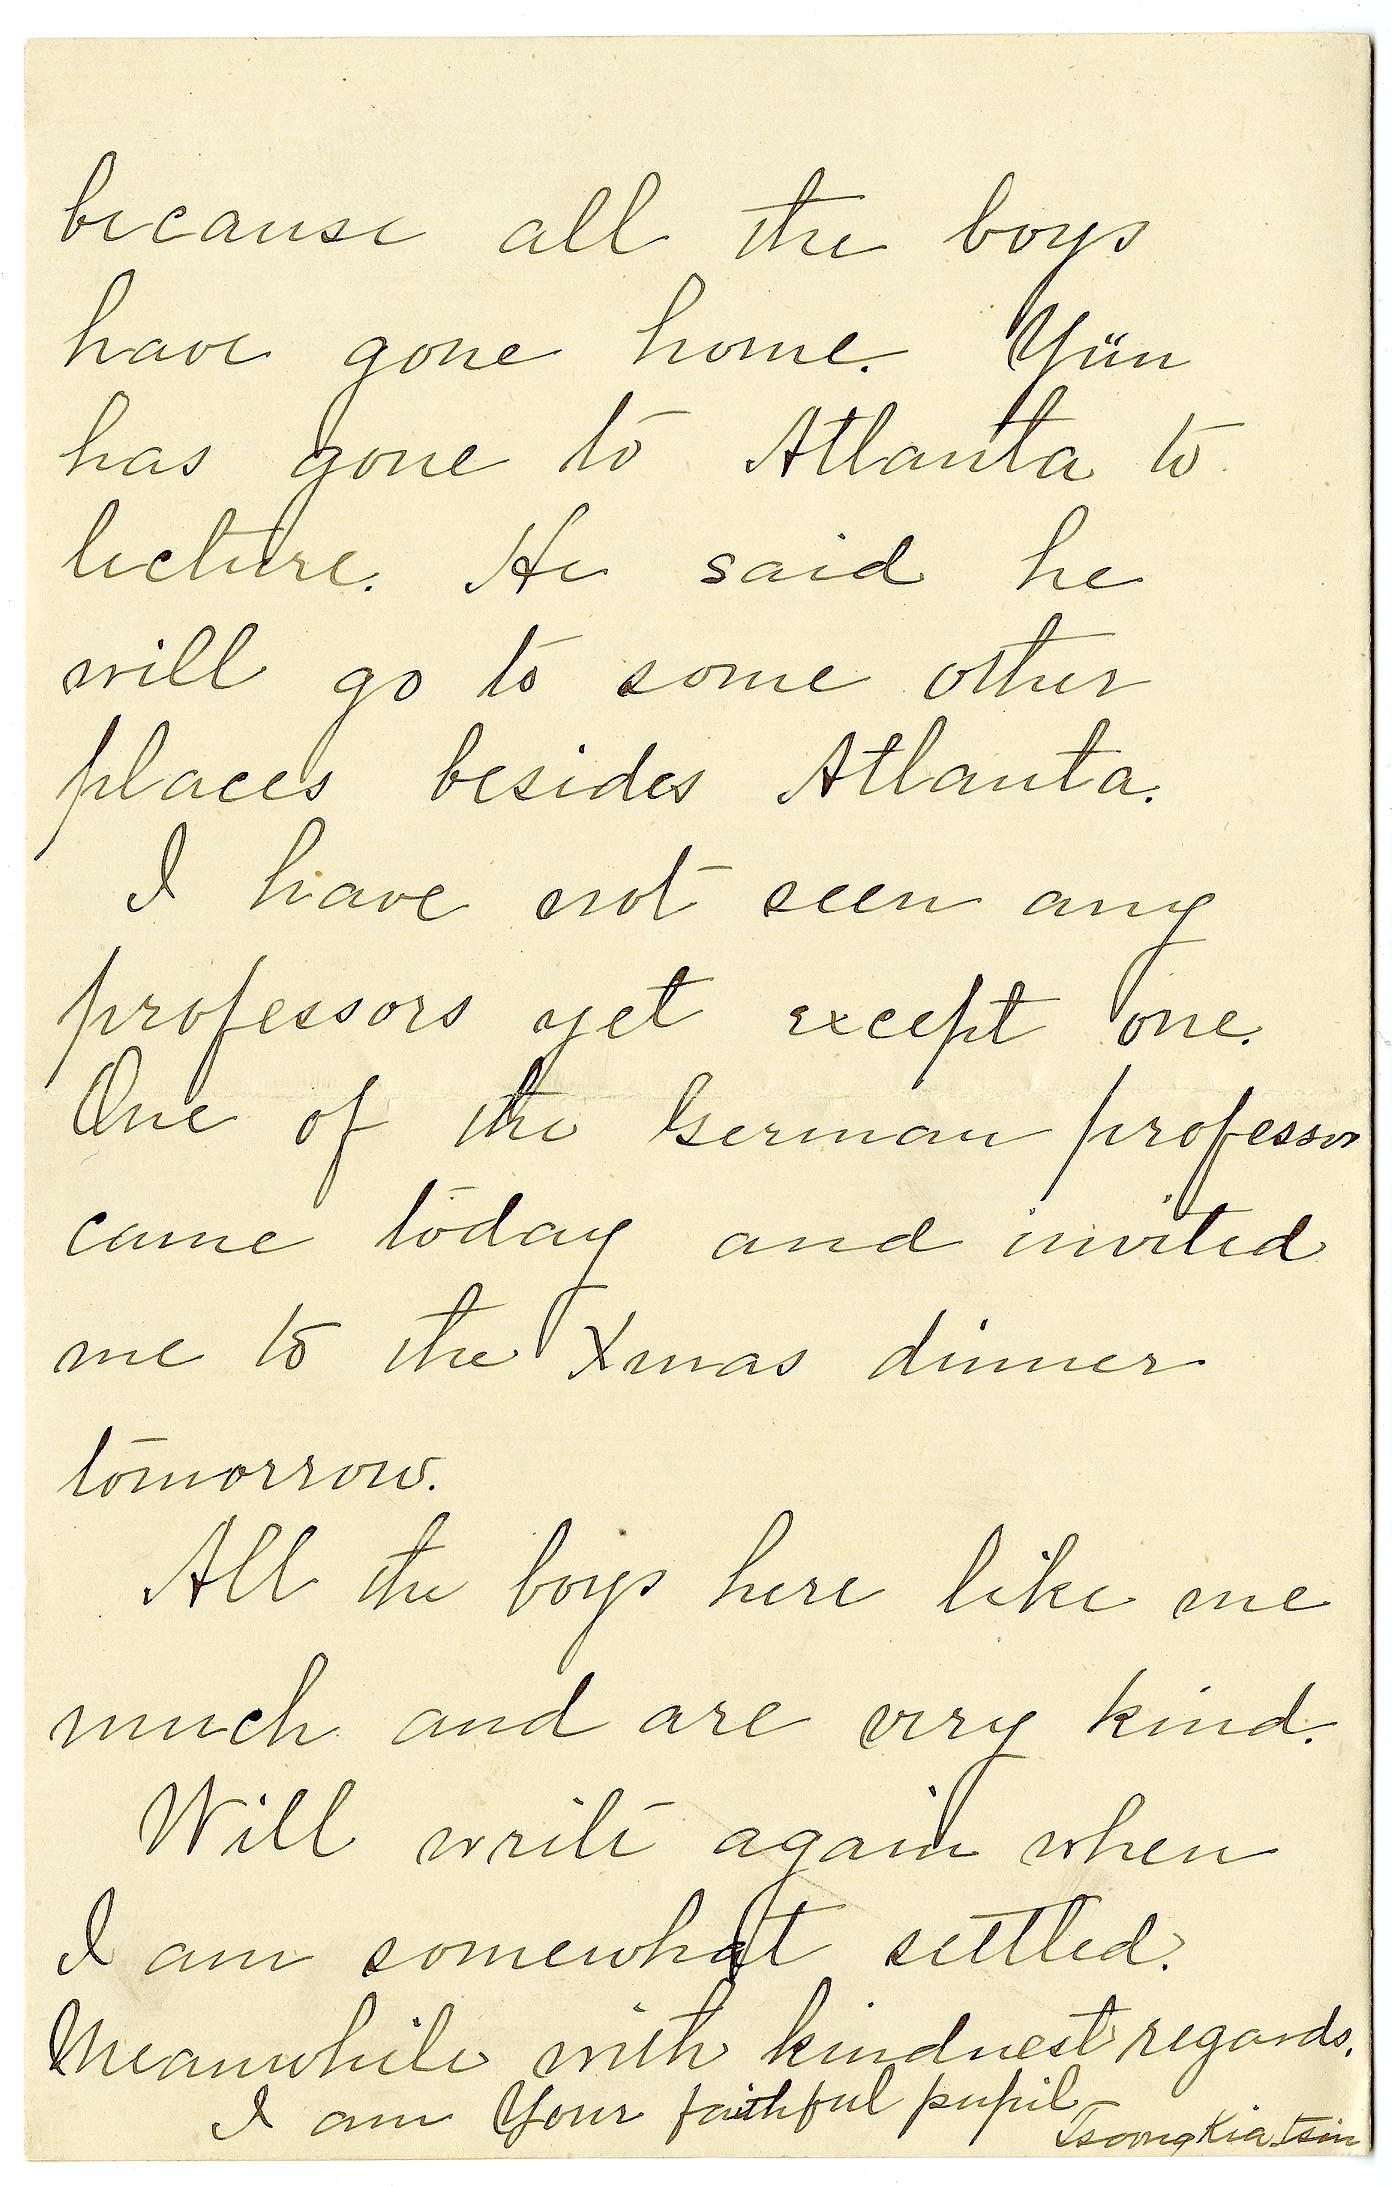 because all the boys
have gone home. Yün
has gone to Atlanta to
lecture. He said he
will go to some other
places besides Atlanta.
I have not seen any
professors yet except one.
One of the German professor
came today and invited
me to the Xmas dinner
tomorrow.
All the boys here like me
much and are very kind.
Will write again when
I am somewhat settled.
Meanwhile with kindnest regards.
I am Your faithful pupil
Tsoong Kia-tsin